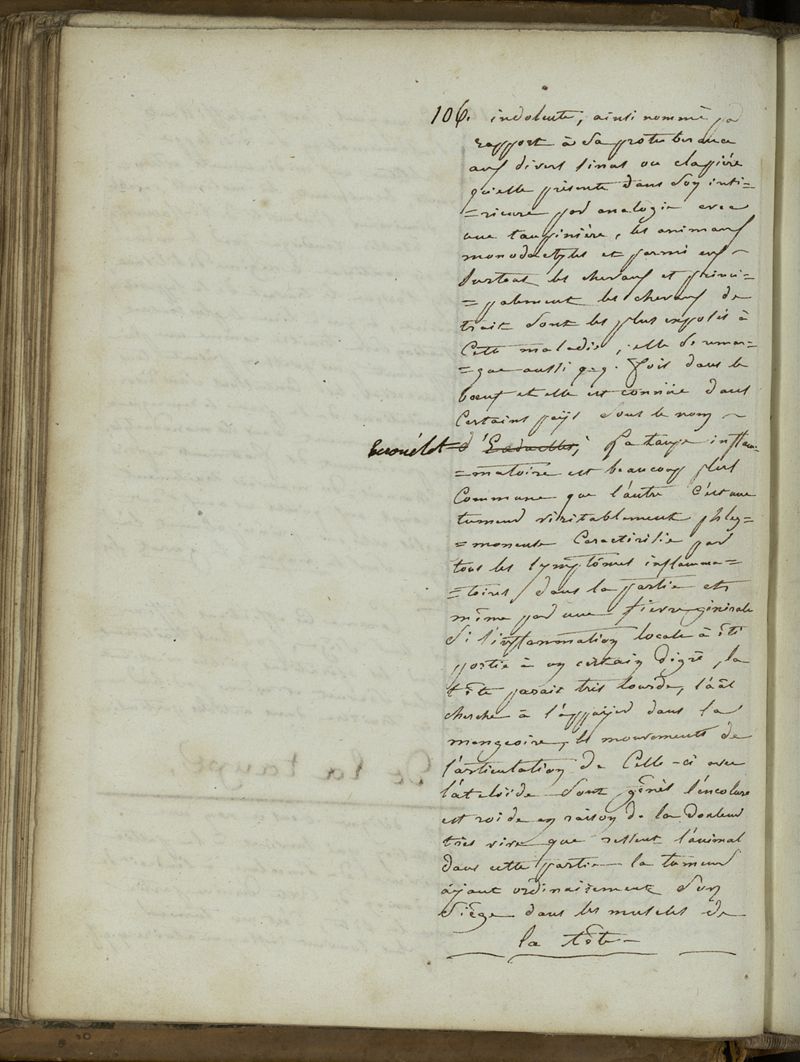 106. indolente, ainsi nommé par
rapport à sa protuberance
aux divers sinus ou clapière
qu'elle présente dans son inté=
=rieure par analogie avec
une taupinière, les animaux
monodactyles et parmi eux ~
surtout les chevaux et princi=
=palement les chevaux de
trait sont les plus exposés à
cette maladie, elle se remar=
=que aussi q.q. fois dans le
bœuf et elle est connüe dans
certains païs sous le nom ~
d' la taupe inflam=
=matoire est beaucoup plus
commune que l'autre c'est une
tumeur véritablement phleg=
=moneuse caractérisée par
tous les symptômes inflamma=
=toires dans la partie et
même par une fièvre générale
si l'inflammation locale à été
portée à un certain dégré, la
tête parait très lourde,
cherche à l'appüyer dans la
mangeoire, les mouvements de
l'articulation de celle-ci avec
l'atloïde sont gênés l'encolure
est roide en raison de la douleur
très vive que ressent l'animal
dans cette partie la tumeur
ayant ordinairement son
siège dans les muscles de
la tête —
De la taupe.